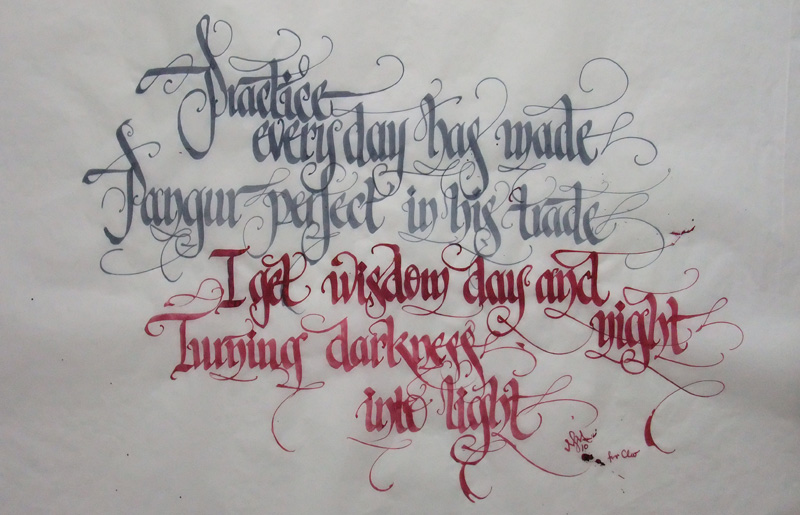 Practice
every day has made
Pangur perfect in his trade
I get wisdom day and
night
Turning darkness
into light
for Cleo